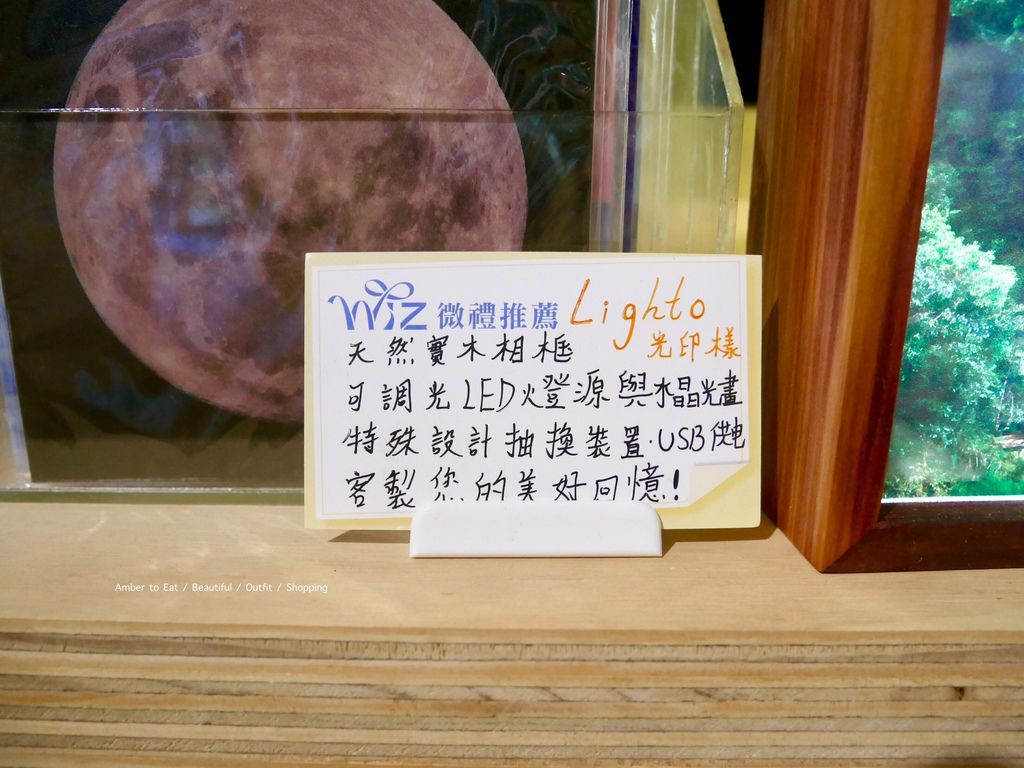 Wiz 微禮推薦 Lighto
光印樣
天然實木相框
可調光LED燈源與水晶光畫
特殊設計抽換裝置·USB供電
客製您的美好回憶!
Amber to Eat / Beautiful / Outfit / Shopping